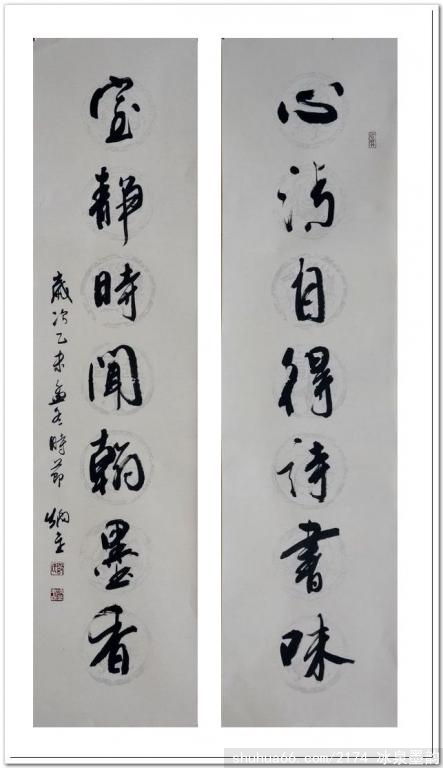 心清自得詩書味
室靜時聞翰墨香
歲次乙未孟冬時節
shuhua66.com/2174 冰泉墨韵